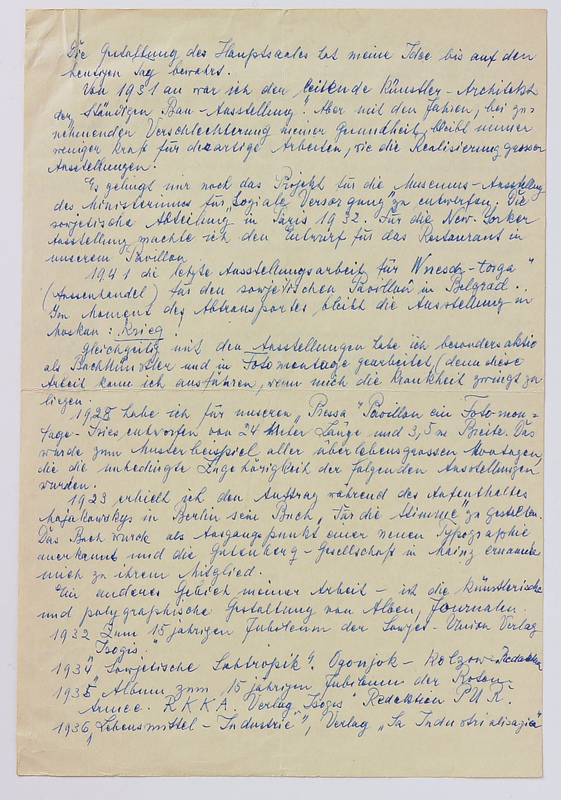 Die Gestaltung des Hauptsaales hat meine Idee bis auf den
heutigen Tag bewahrt.
Von 1931 an war ich der leitende Künstler-Architekt
der "Ständigen Bau-Ausstellung". Aber mit den Jahren, bei zu=
nehmender Verschlechterung meiner Gesundheit, bleibt immer
weniger Kraft für derartige Arbeiten, wie die Realisierung grosser
Ausstellungen.
Es gelingt mir noch das Projekt für die Museums-Ausstellung
des Ministeriums für soziale Versorgung zu entwerfen. Die
sowjetische Abteilung in Paris 1932. Für die New-Yorker
Ausstellung machte ich den Entwurf für das Restaurant in
unserem Pavillon
1941 die letzte Ausstellungsarbeit für "Wnesch-torga"
(Aussenhandel) für den sowjetischen Pavillon in Belgrad.
Im Moment des Abtransportes bleibt die Ausstellung in
Moskau: Krieg!
Gleichzeitig mit den Ausstellungen habe ich besonders aktiv
als Buchkünstler und in Fotomontage gearbeitet (denn diese
Arbeit kann ich ausführen, wenn mich die Krankheit zwingt zu
liegen.
1928 habe ich für unseren "Pressa" Pavillon ein Fotomon=
tage-Fries entworfen von 24 Meter Länge und 3,5 m Breite. Das
wurde zum Musterbeispiel aller überlebensgrossen Montagen,
die die unbedingte Zugehörigkeit der folgenden Ausstellungen
wurden.
1923 erhielt ich den Auftrag während des Aufenthaltes
Majakowskys in Berlin sein Buch "Für die Stimme" zu gestalten.
Das Buch wurde als Ausgangspunkt einer neuen Typographie
anerkannt und die Gutenberg-Gesellschaft in Mainz ernannte
mich zu ihrem Mitglied.
Ein anderes Gebiet meiner Arbeit - ist die künstlerische
und polygraphische Gestaltung von Alben, Journalen.
1932 Zum 15 jährigen Jubiläum der Sowjet-Union Verlag
"Isogis."
1934 "Sowjetische Subtropik". Ogonjok - Kolzow-Redaktion
1935 Album zum 15 jährigen Jubiläum der Roten
Armee. R.K.K.A. Verlag "Isogis" Redaktion PUR.
1936 "Lebensmittel-Industrie", Verlag "Sa Industrialisazia"